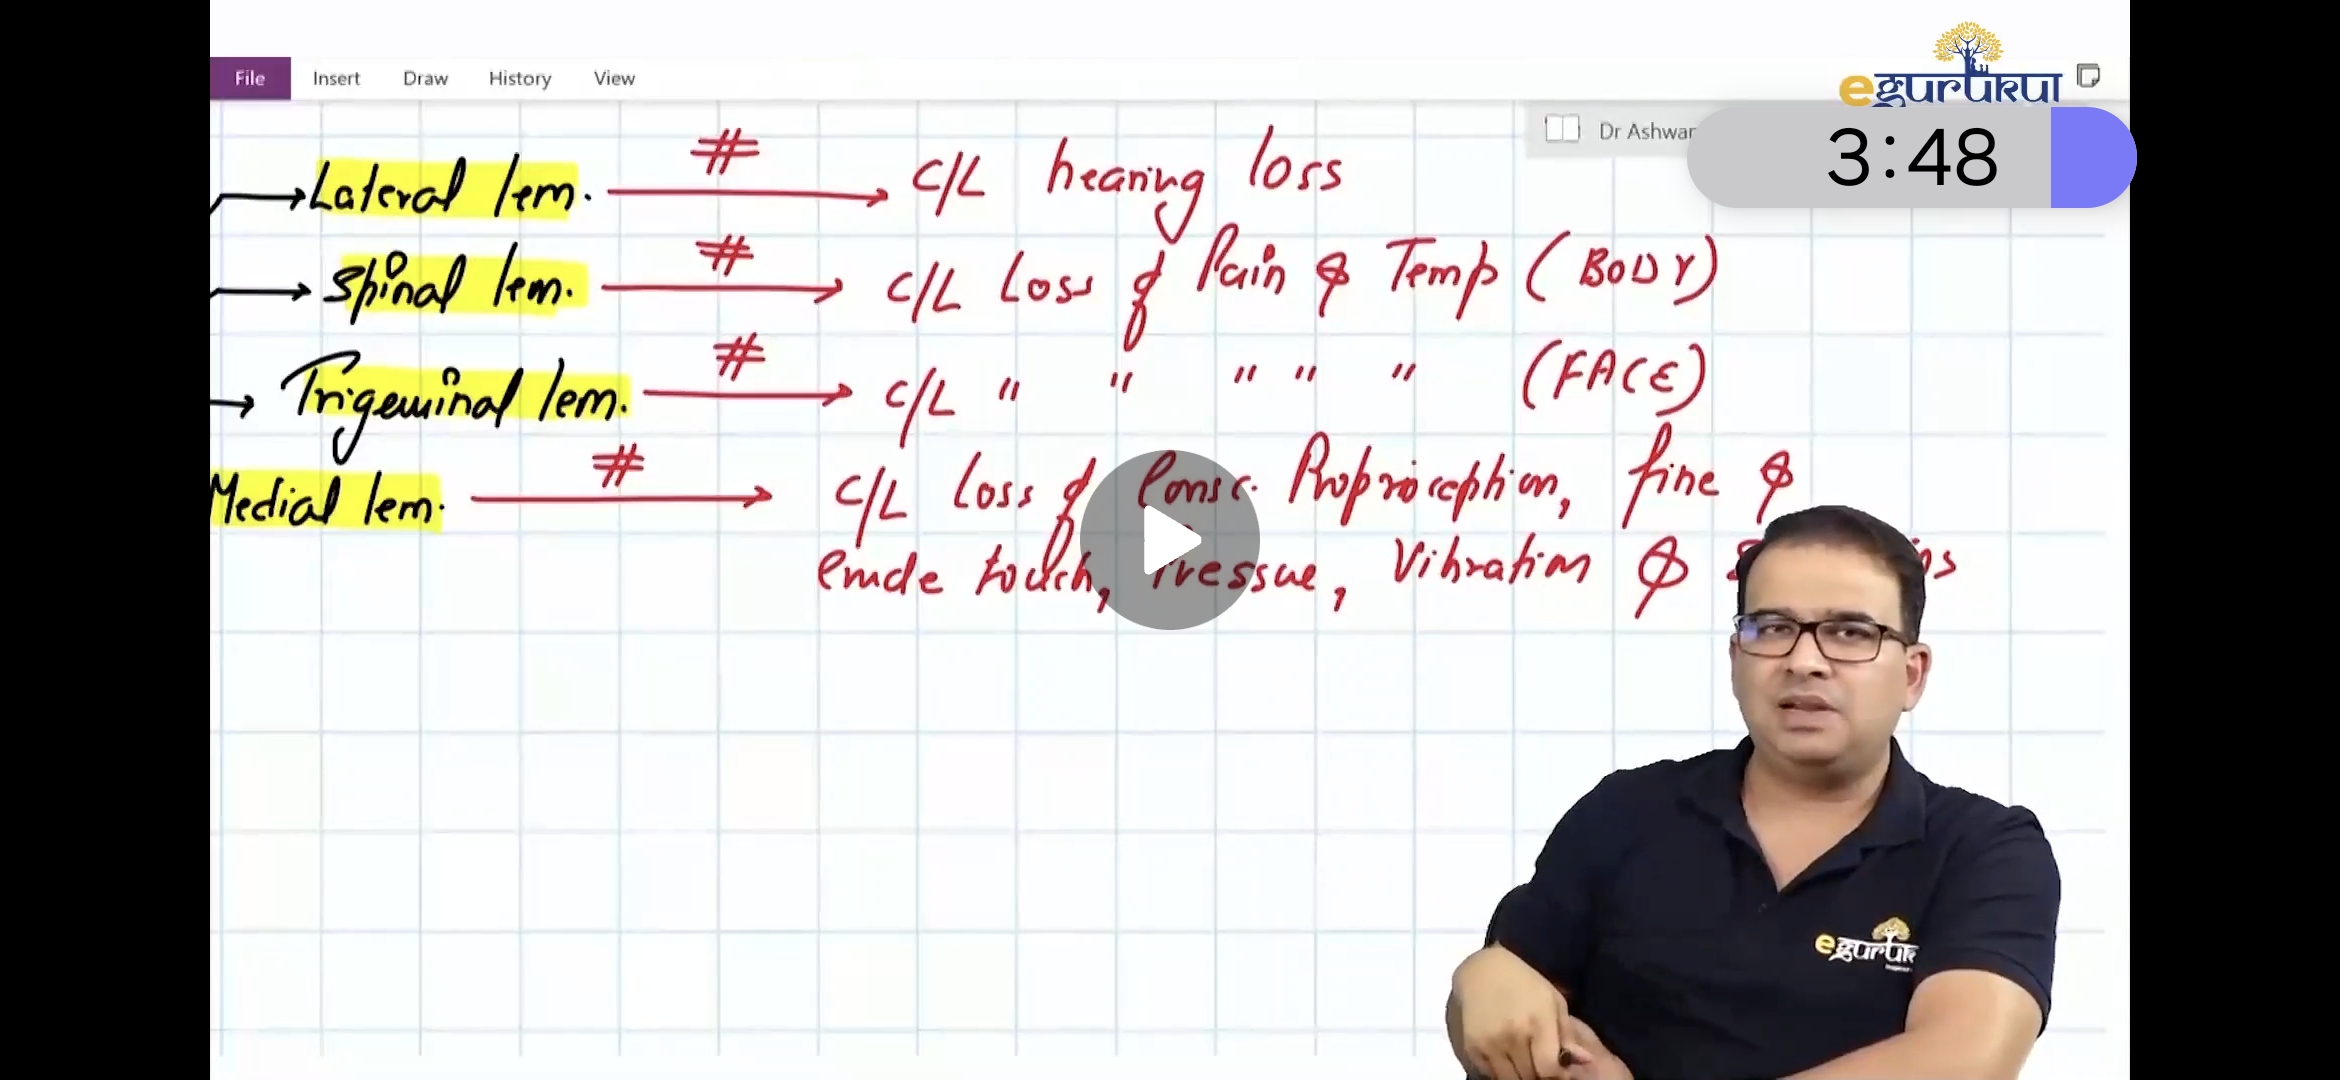 egurukul
File Insert Draw History View
Dr Ashwar
3:48
→ Lateral lem. # → C/L hearing loss
→ Spinal lem. # → C/L Loss of Pain & Temp (BODY)
→ Trigeminal lem. # → C/L " " " " " (FACE)
Medial lem. # → C/L Loss of Consc. Proprioception, fine &
crude touch, Pressure, Vibration &
eguruk